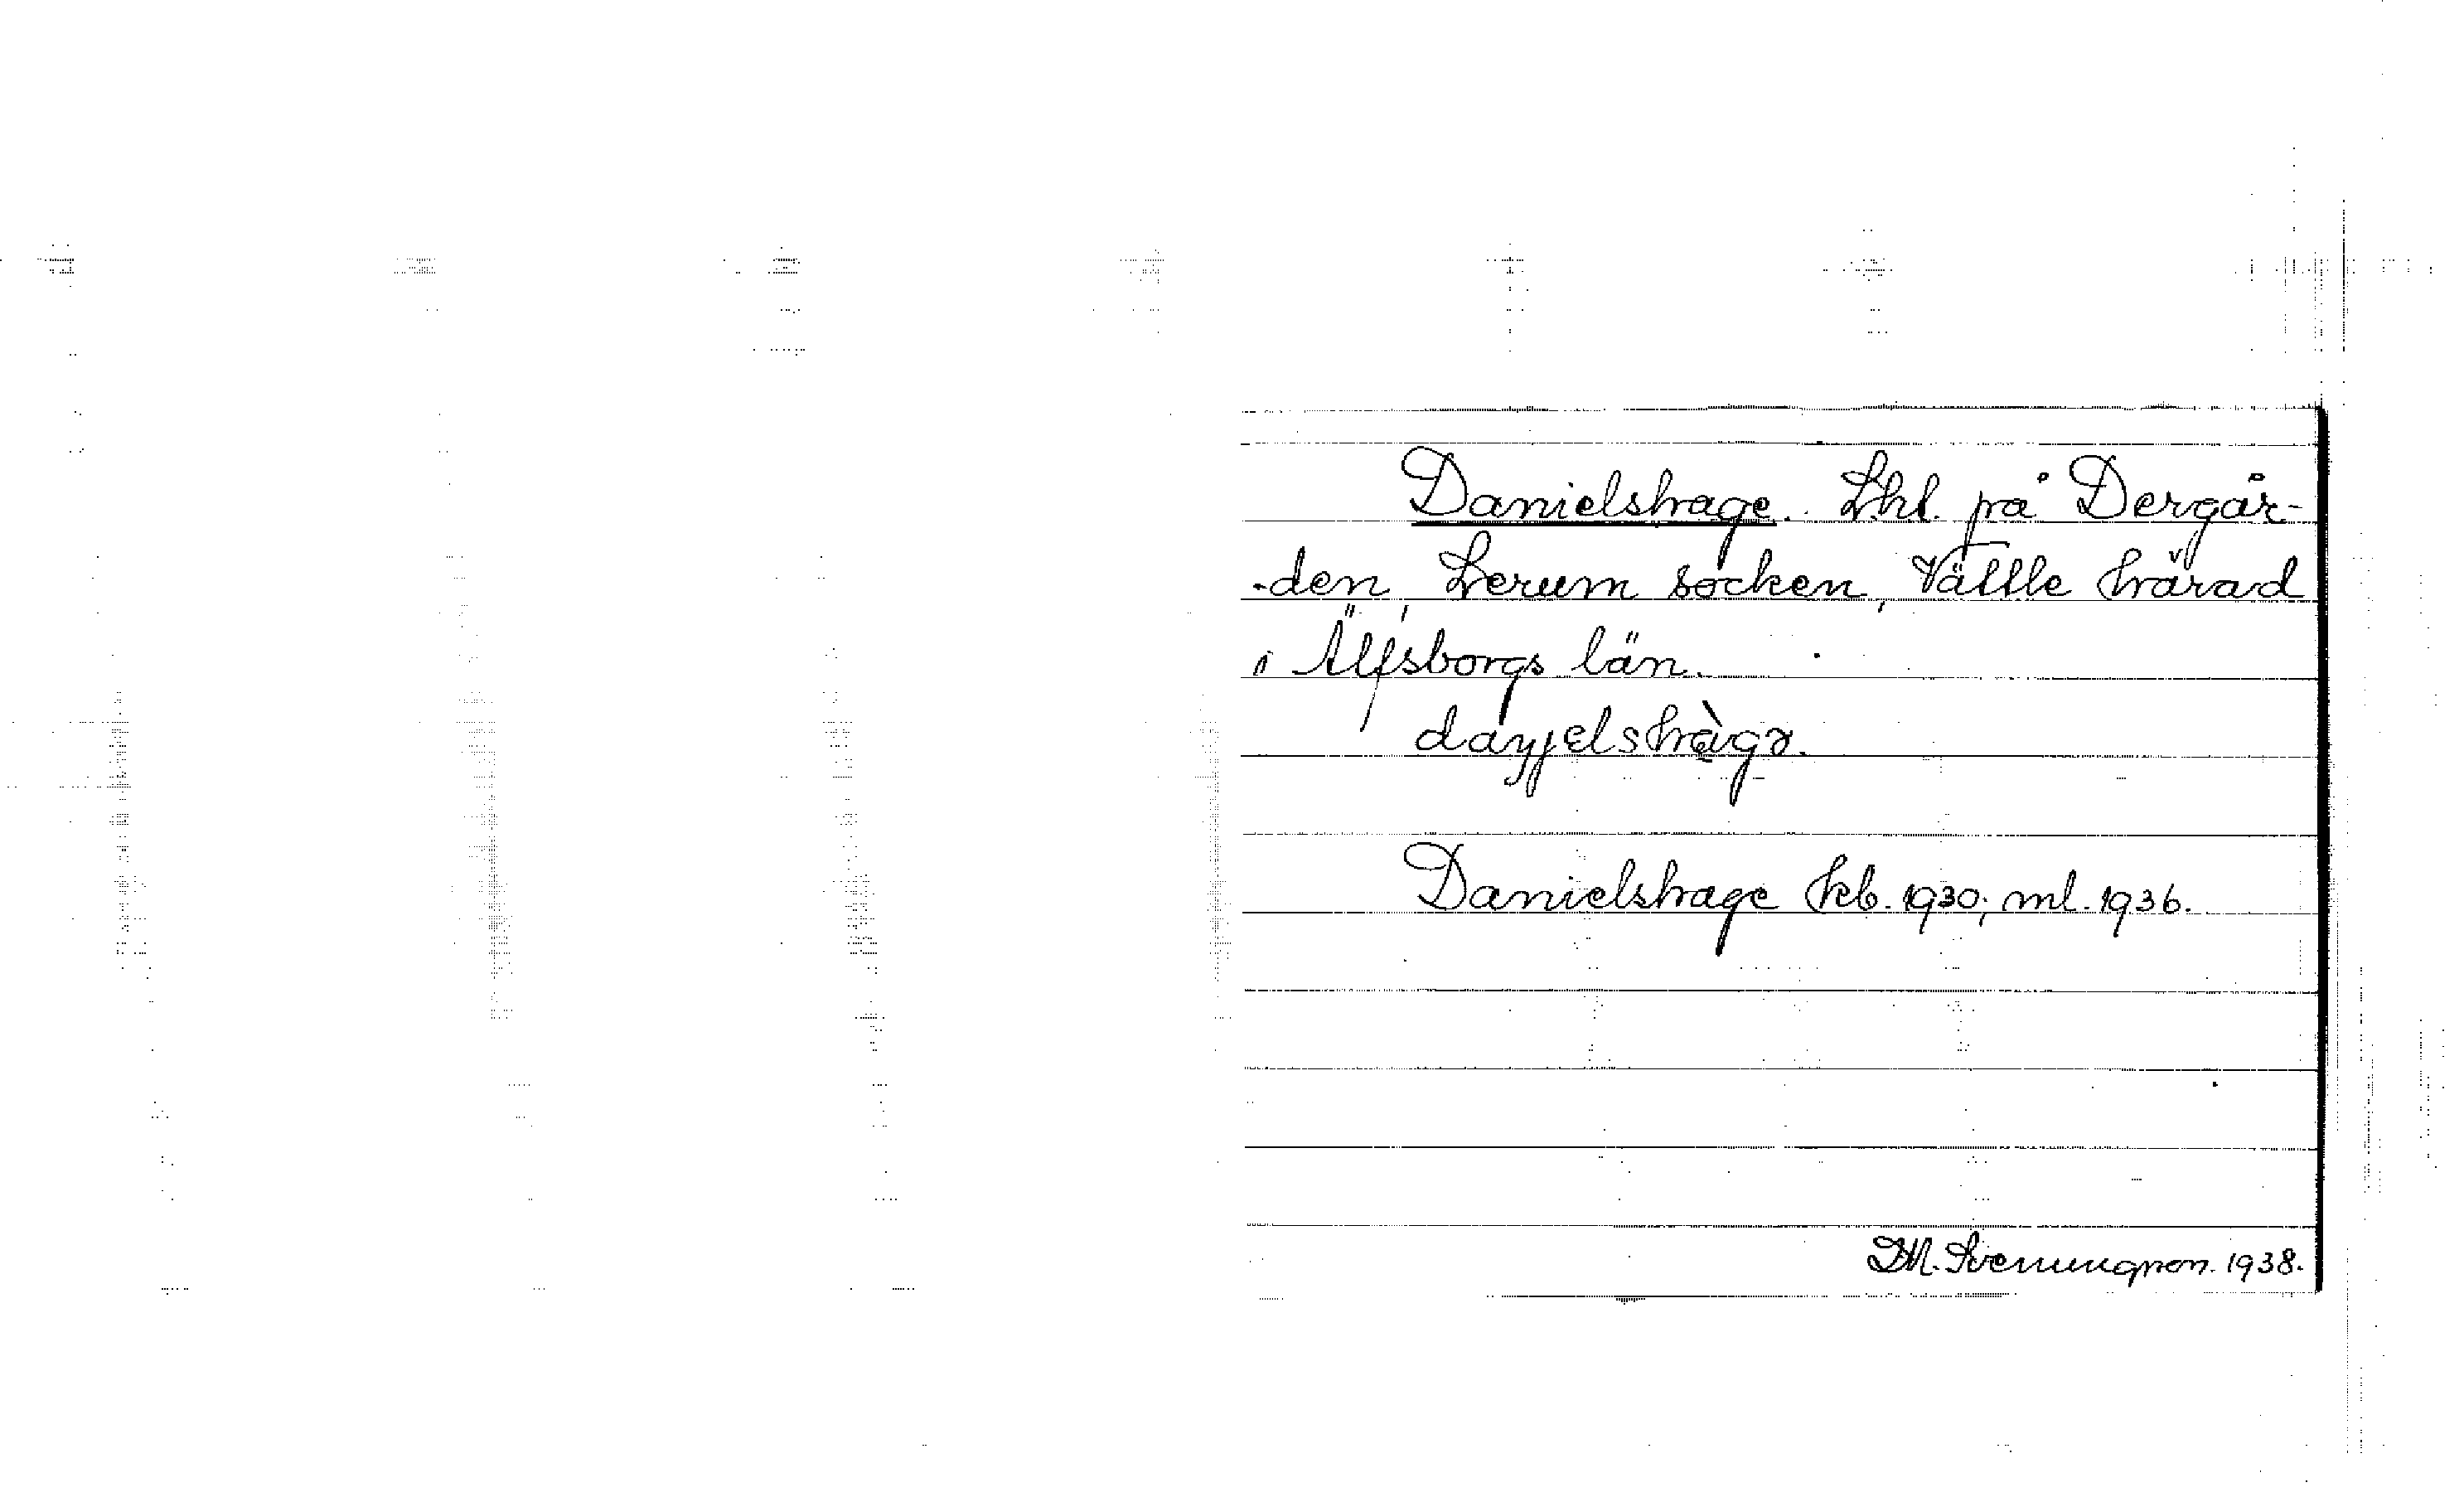 Danielshage. Lhl. på Dergår-
-den, Lerum socken, Vättle härad
i Älfsborgs län.
Danielshage kb. 1930; ml. 1936.
M. Svenungson. 1938.